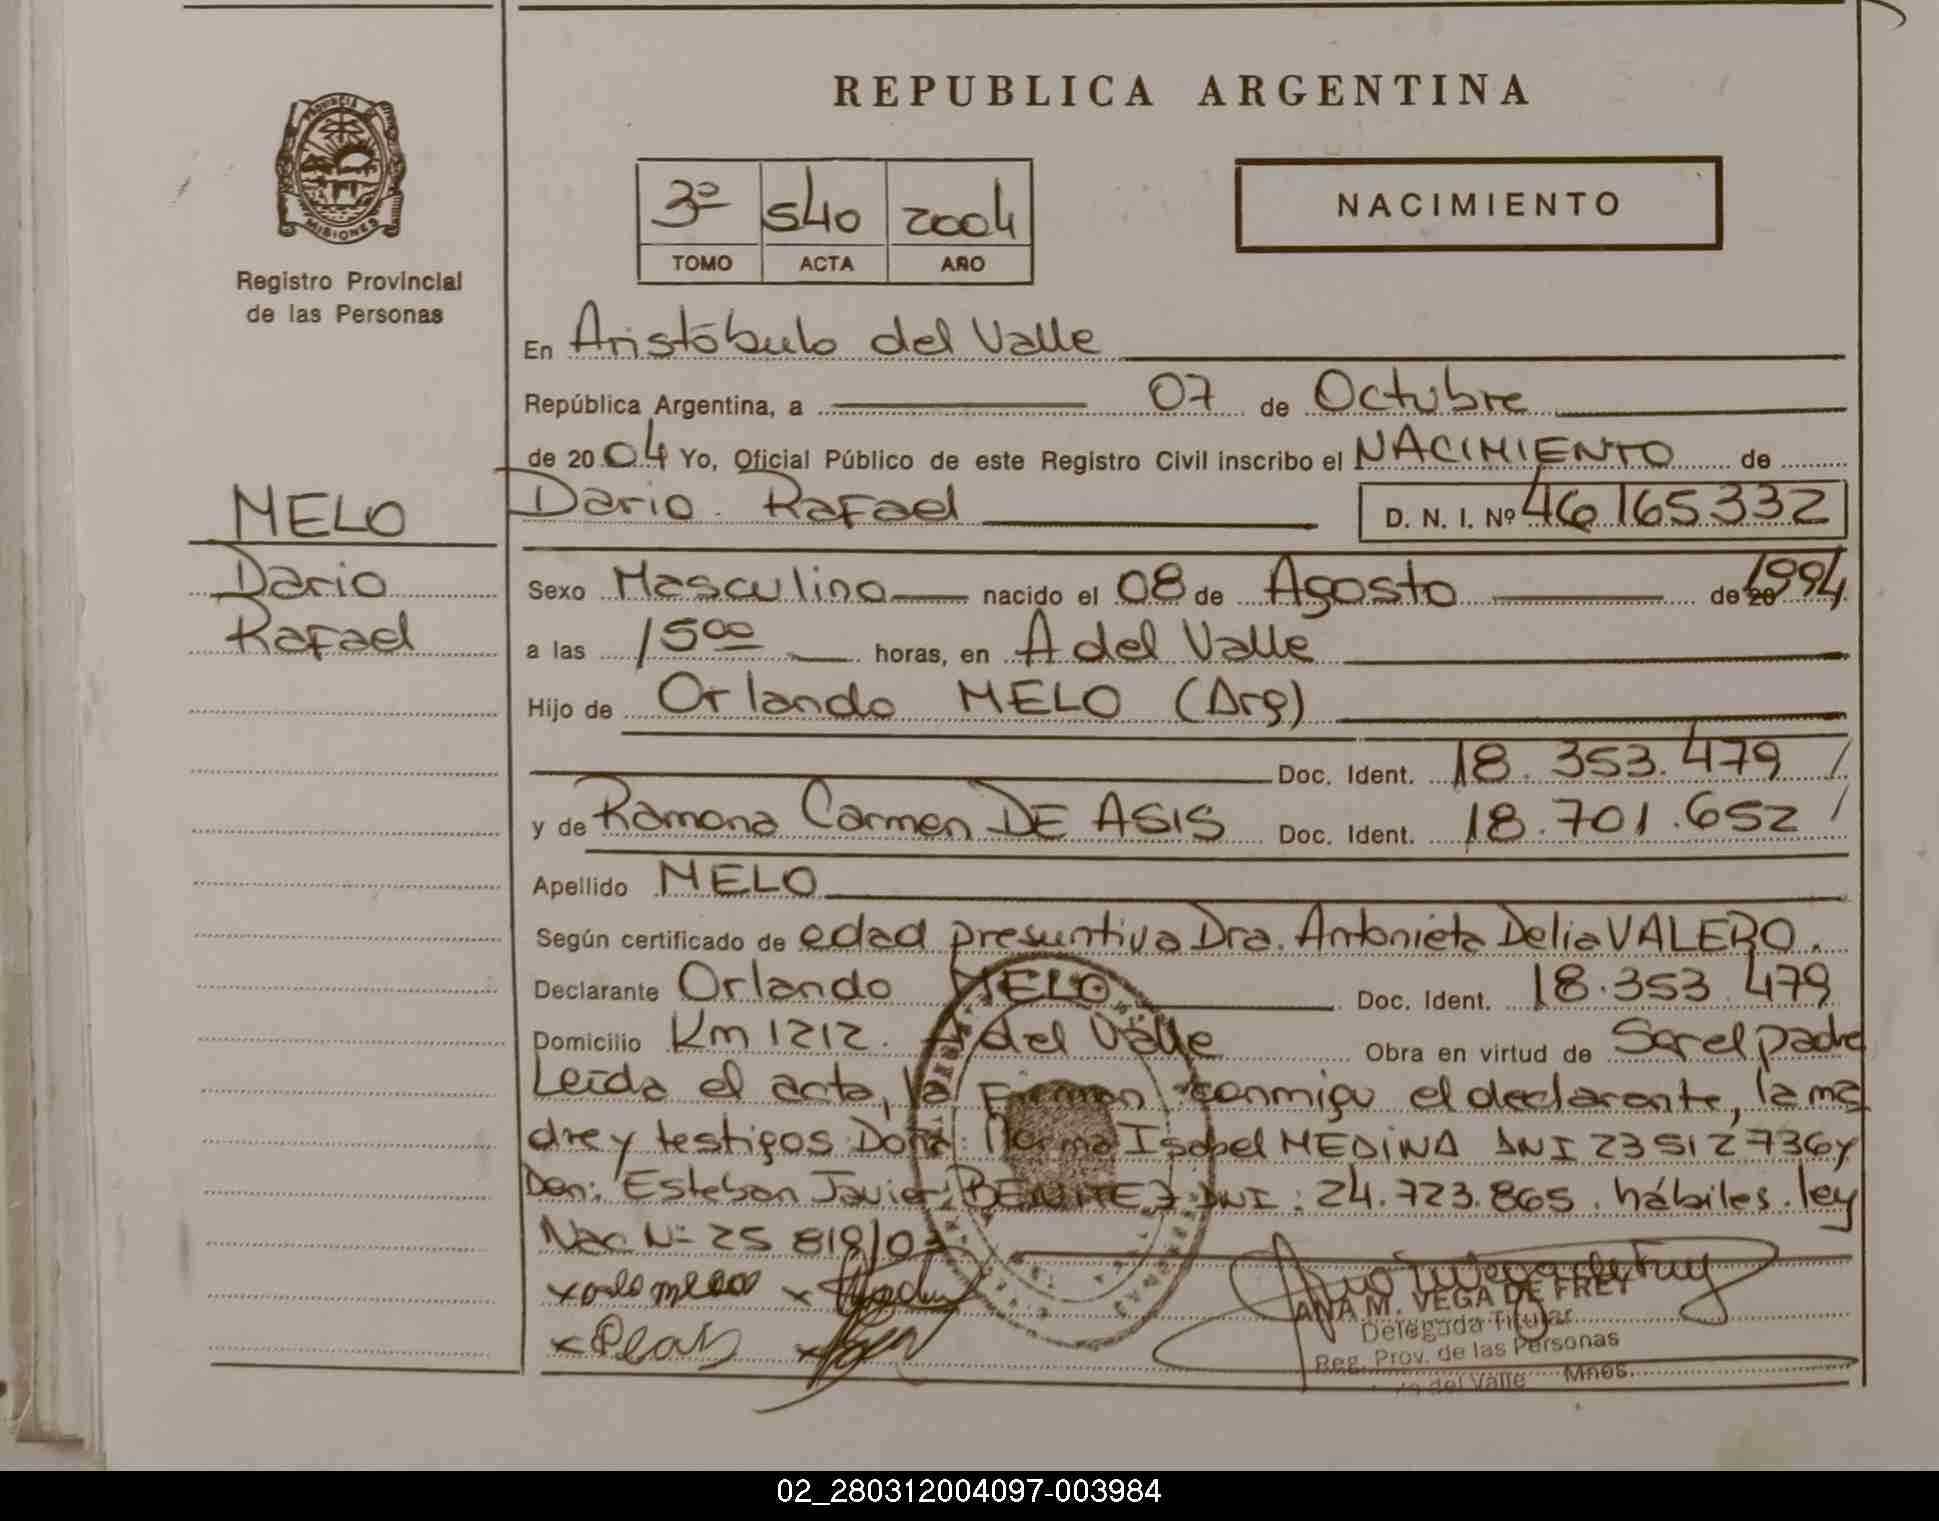 REPUBLICA ARGENTINA
PROVINCIA
MISIONES
Registro Provincial
de las Personas
3º 540 2004
TOMO ACTA AÑO
NACIMIENTO
En Aristóbulo del Valle
República Argentina, a 07 de Octubre
de 2004 Yo, Oficial Público de este Registro Civil inscribo el NACIMIENTO de
Dario Rafael D. N. I. Nº 46165332
MELO
Dario
Rafael
Sexo Masculino nacido el 08 de Agosto de 20 1994
a las 15 00 horas, en A del Valle
Hijo de Orlando MELO (Arg)
Doc. Ident. 18.353.479
y de Ramona Carmen DE ASIS Doc. Ident. 18.701.652
Apellido MELO
Según certificado de edad presuntiva Dra. Antonieta Delia VALERO.
Declarante Orlando MELO Doc. Ident. 18.353 479
Domicilio Km 1212. A del Valle Obra en virtud de Ser el padre
Leída el acta, la Firman conmigo el declarante, la ma
dre y testigos Doña: Norma Isabel MEDINA DNI 23512736 y
Don: Esteban Javier BENITEZ DNI: 24.723.865. hábiles. ley
Nac Nº 25 819/03
ANA M. VEGA DE FREY
Delegada Titular
Reg. Prov. de las Personas
del Valle Mnes.
02_280312004097-003984